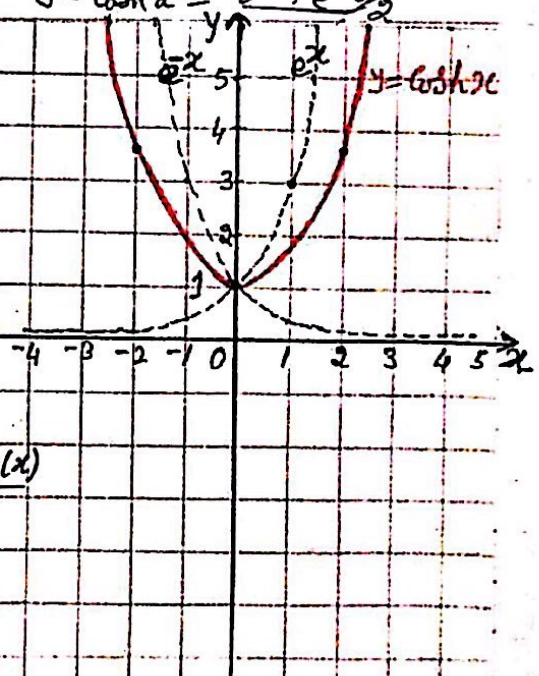 y = cosh x =
2
y
e^-x
e^x
y = cosh x
5
4
3
2
1
-4 -3 -2 -1 0 1 2 3 4 5 x
(x)